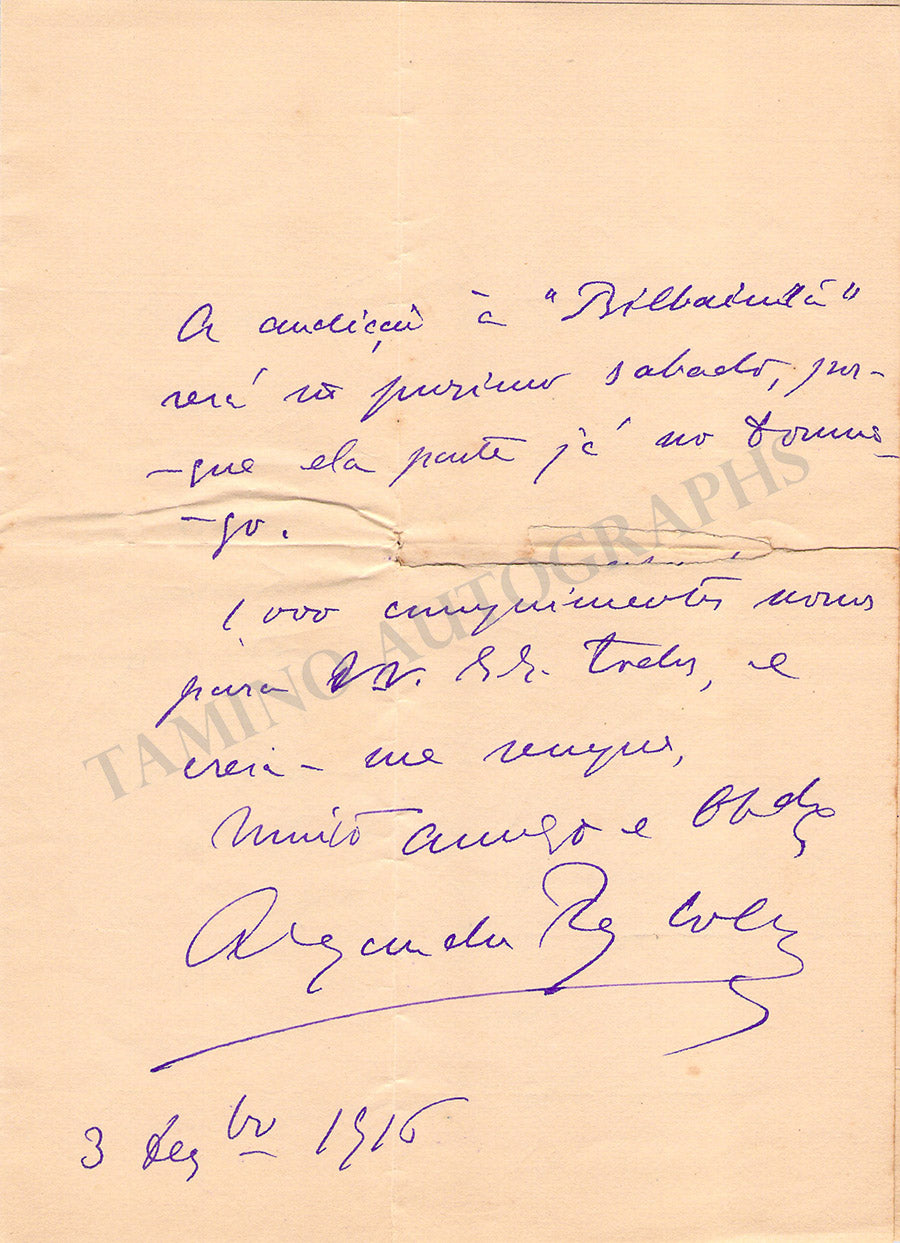 A audição à "Bilbainita"
será no proximo sabado, por-
-que ela parte já no Domin-
-go.
1000 cumprimentos nossos
para VV. EE. todos, e
creia-me sempre,
Muito amigo e Obdo
Alejandro Rey Colaço
3 Dezbro 1916
TAMINO AUTOGRAPHS